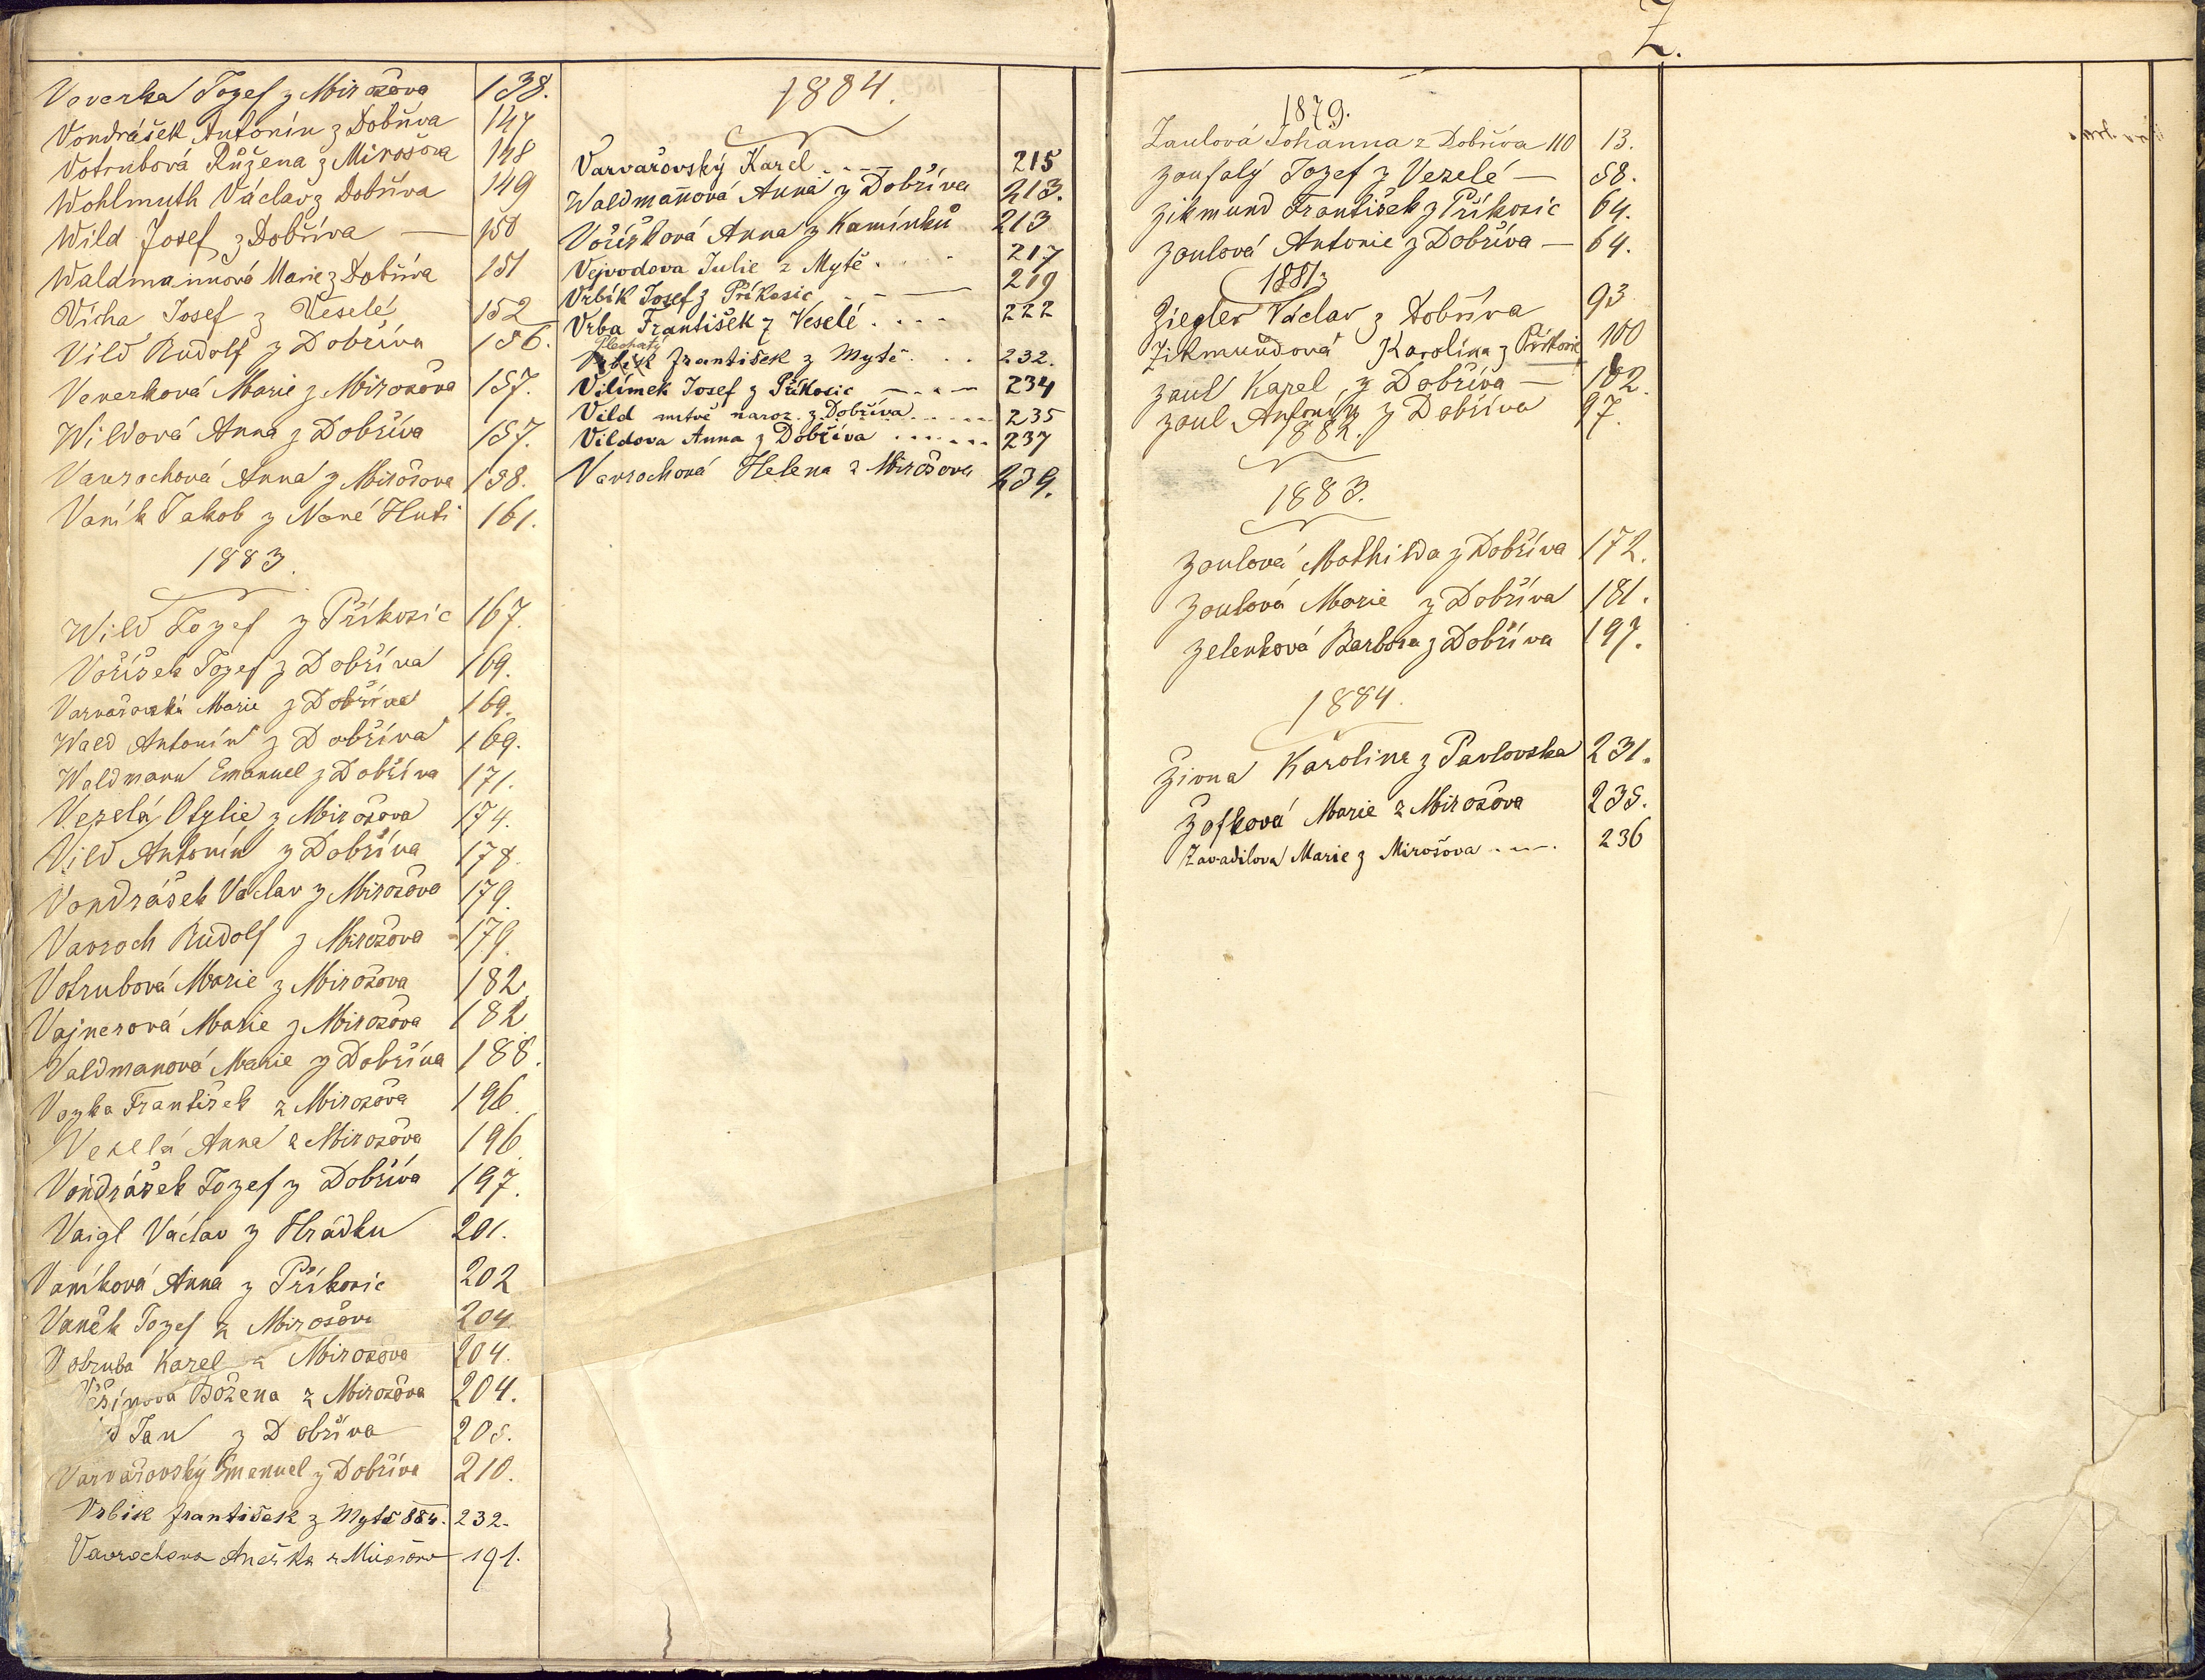 Veverka Jozef z Mirošova 138.
Vondrášek Antonín z Dobřiva 147
Votrubová Růžena z Mirošova 148
Wohlmuth Václav z Dobřiva 149
Wild Josef z Dobříva — 150
Waldmannová Marie z Dobříva 151
Vícha Josef z Veselé 152
Vild Rudolf z Dobříva 156.
Veverková Marie z Mirošova 157.
Wildová Anna z Dobříva 157.
Vavrochová Anna z Mirošova 158.
Vaník Jakob z Nové Huti 161.
1883.
Wild Jozef z Příkosic 167.
Voříšek Jozef z Dobříva 169.
Varvařovská Marie z Dobříva 169.
Wald Antonín z Dobříva 169.
Waldmann Emanuel z Dobříva 171.
Veselá Otylie z Mirošova 174.
Vild Antonín z Dobříva 178.
Vondrášek Václav z Mirošova 179.
Vavroch Rudolf z Mirošova 179.
Votrubová Marie z Mirošova 182.
Vajnerová Marie z Mirošova 182
Valdmanová Marie z Dobříva 188.
František z Mirošova 196.
Veselá Anna z Mirošova 196.
Vondrášek Jozef z Dobříva 197.
Vaigl Václav z Hrádku 201.
Vaníková Anna z Příkosic 202
Vaněk Jozef z Mirošova 204
Votruba Karel z Mirošova 204.
Božena z Mirošova 204.
Jan z Dobříva 205.
Varvařovský Emanuel z Dobříva 210.
Vrbik František z Mytě 884. 232.
Vavrochova Anežka z Mirošova 191.
1884.
Varvařovský Karel 215
Waldmannová Anna z Dobříva 213.
Voříšková Anna z Kamínků 213
Vejvodova Julie z Mytě 217
Vrbík Josef z Příkosic 219
Vrba František z Veselé 222
Plechatý
Vrbik František z Mytě 232.
Vilímek Josef z Příkosic 234
Vild mrtvě naroz. z Dobříva 235
Vildova Anna z Dobříva 237
Vavrochová Helena z Mirošova 239.
Z.
1879.
Zaulová Johanna z Dobříva 110 13.
Zoufalý Jozef z Veselé — 58.
Zikmund František z Příkosic 64.
Zaulová Antonie z Dobříva — 64.
1881
Ziegler Václav z Dobříva 93
Zikmundová Karolina z Příkosic 100
Zaul Karel z Dobříva — 102.
Zaul Antonín z Dobříva 97.
1882.
1883.
Zaulová Mathilda z Dobříva 172.
Zaulová Marie z Dobříva 181.
Zelenková Barbora z Dobříva 197.
1884.
Živna Karolina z Pavlovska 231.
Žofková Marie z Mirošova 235.
Zavadilova Marie z Mirošova 236